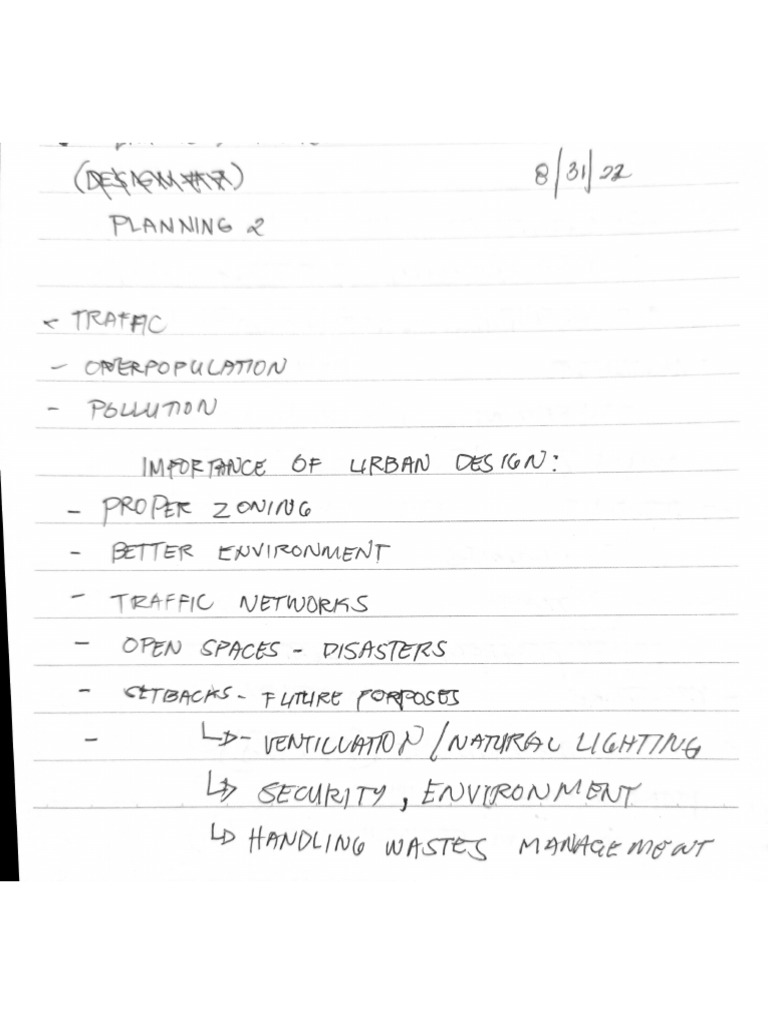 8/31/22
PLANNING 2
- TRAFFIC
- OVERPOPULATION
- POLLUTION
IMPORTANCE OF URBAN DESIGN:
- PROPER ZONING
- BETTER ENVIRONMENT
- TRAFFIC NETWORKS
- OPEN SPACES - DISASTERS
- SETBACKS - FUTURE PORPOSES
- ↳ - VENTILLVATION / NATURAL LIGHTING
↳ SECURITY, ENVIRONMENT
↳ HANDLING WASTES MANAGEMENT